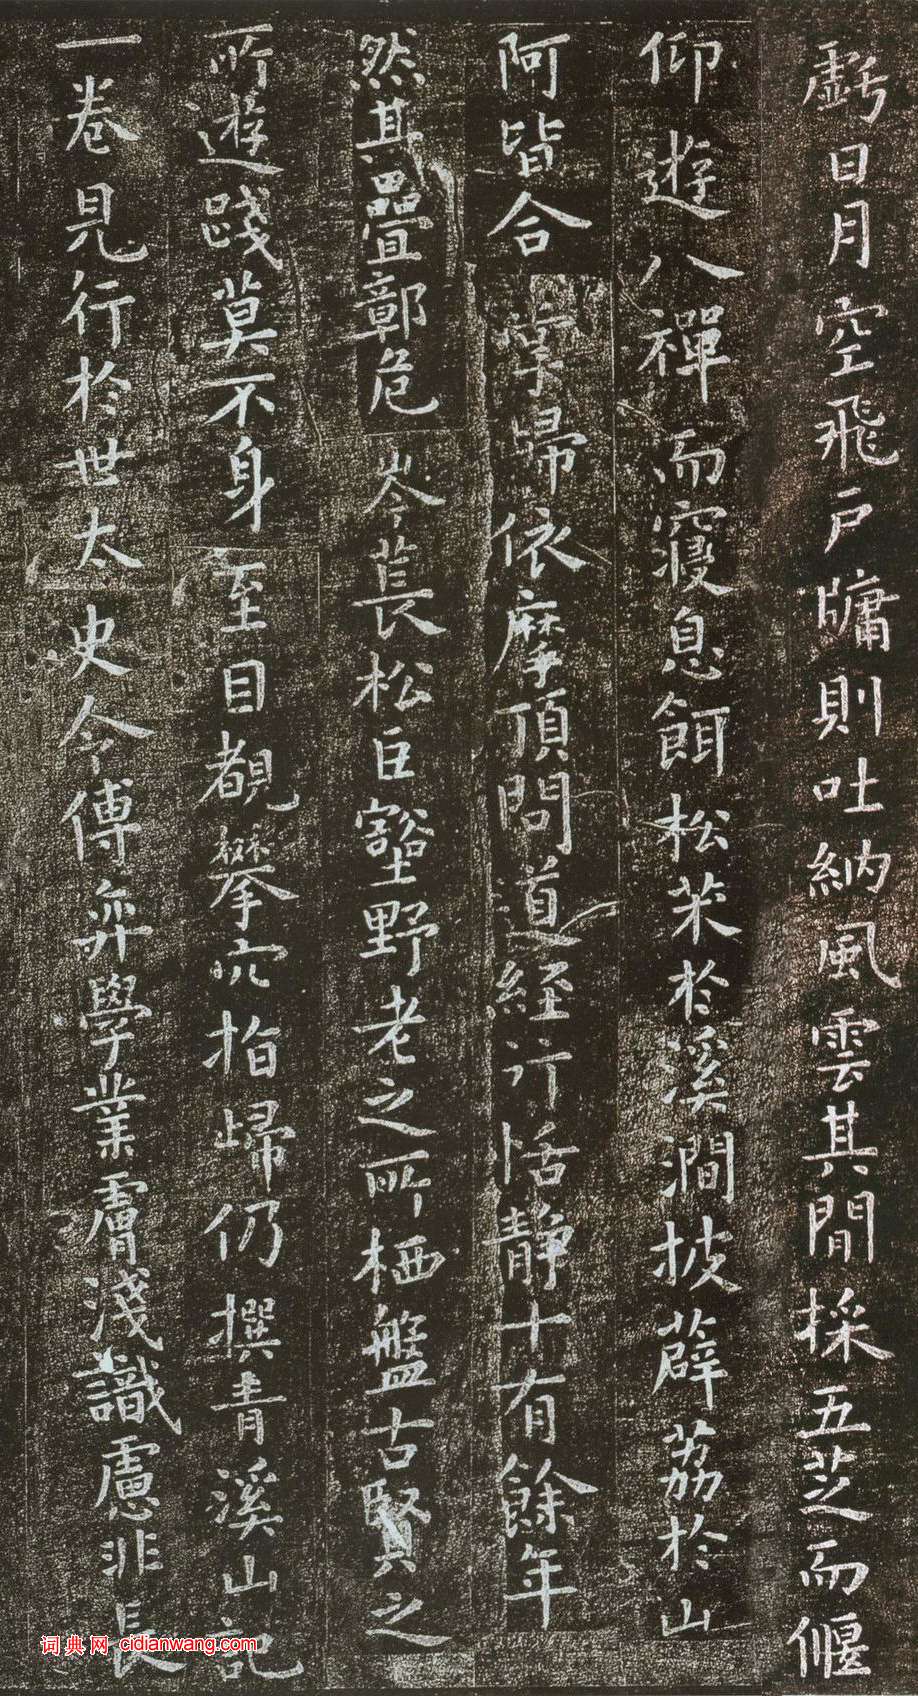 虧日月空飛戶牗則吐納風雲其間採五芝而偃
仰遊八禪而寢息餌松茱於溪澗披薜荔於山
阿皆合掌歸依摩頂問道經行恬靜十有餘年
然其疊鄣危岑萇松巨壑野老之所栖盤古賢之
所遊踐莫不身至目覩攀穴指歸仍撰青溪山記
一卷見行於世太史令傅弈學業膚淺識慮非長
词典网 cidianwang.com